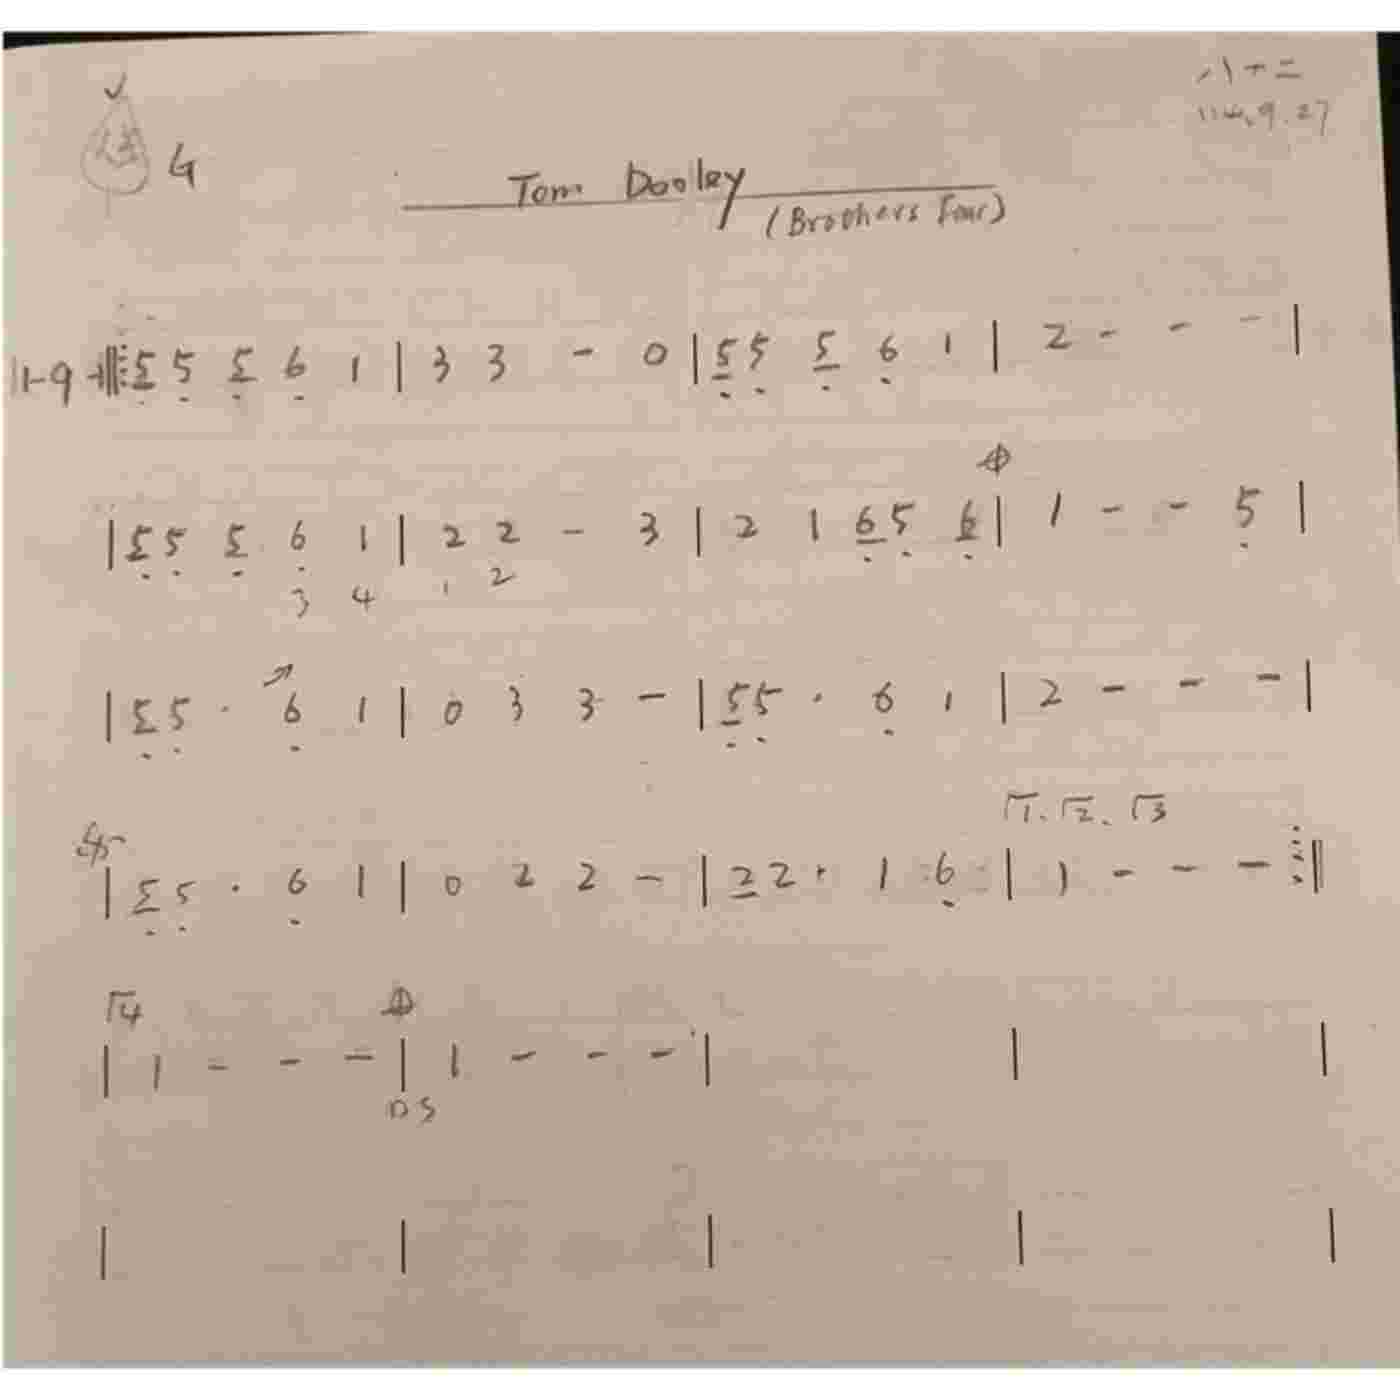 八十二
114.9.27
G
Tom Dooley
(Brothers Four)
1-9 ‖: 5 5 5 6 1 | 3 3 - 0 | 5 5 5 6 1 | 2 - - - |
| 5 5 5 6 1 | 2 2 - 3 | 2 1 6 5 6 | 1 - - 5 |
3 4 1 2
| 5 5 · 6 1 | 0 3 3 - | 5 5 · 6 1 | 2 - - - |
1. 2. 3
| 5 5 · 6 1 | 0 2 2 - | 2 2 · 1 6 | 1 - - - :‖
4
| 1 - - - | 1 - - - |
DS